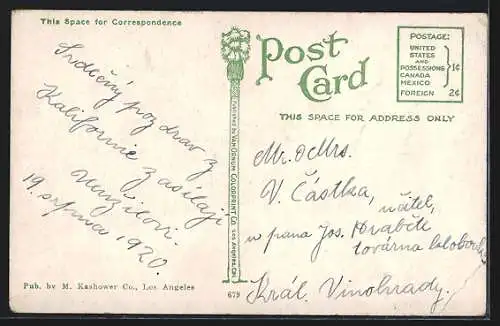 This Space for Correspondence
Srdečný pozdrav z
Kalifornie zasílají
19. srpna, 1920.
Published by Van Ornum Colorprint Co. Los Angeles, Cal.
Post
Card
THIS SPACE FOR ADDRESS ONLY
POSTAGE:
UNITED
STATES
AND
POSSESSIONS
CANADA
MEXICO
1¢
FOREIGN 2¢
Mr. & Mrs.
V. Částka,
učitel,
u pana Jos. Hraběte
továrna
Král. Vinohrady.
Pub. by M. Kashower Co., Los Angeles
679